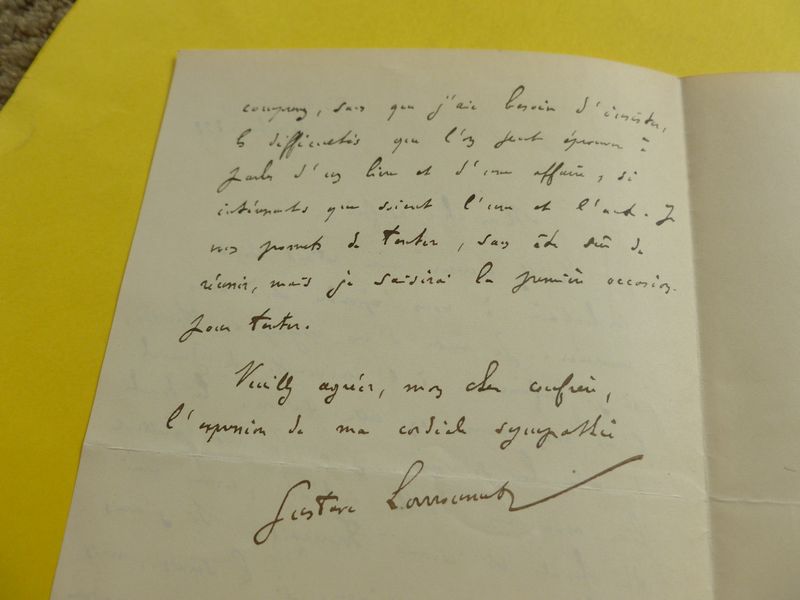 comprenez, sans que j'aie besoin d'insister,
les difficultés que l'on peut éprouver à
parler d'un livre et d'une affaire, si
intéressants que soient l'une et l'autre. Je
vous promets de tenter, sans être sûr de
réussir, mais je saisirai la première occasion
pour tenter.
Veuillez agréer, mon cher confrère,
l'expression de ma cordiale sympathie
Gustave Larroumet